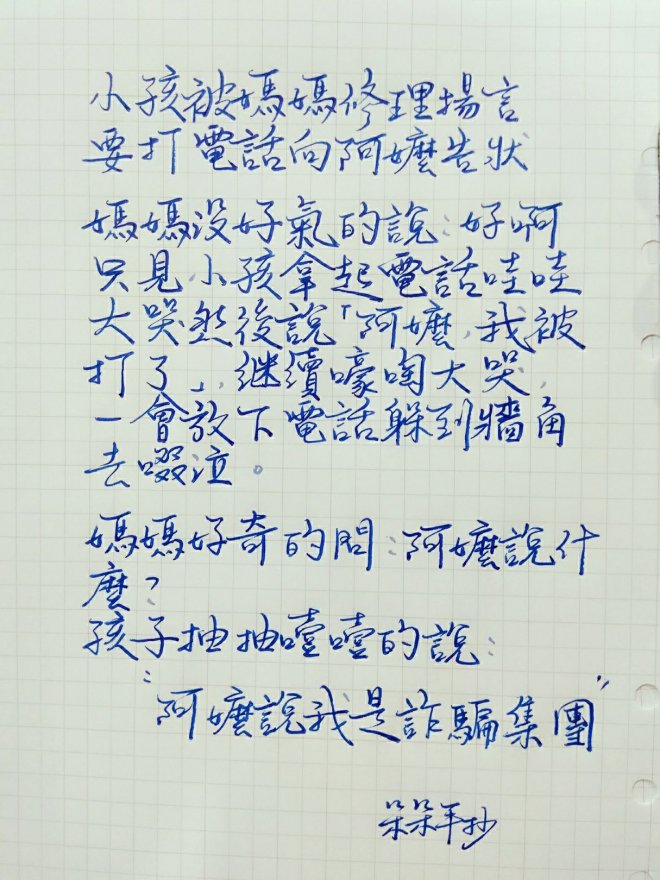 小孩被媽媽修理揚言
要打電話向阿嬤告狀
媽媽没好氣的說：好啊
只見小孩拿起電話哇哇
大哭然後說「阿嬤，我被
打了」，継續嚎啕大哭，
一會放下電話躲到牆角
去啜泣。
媽媽好奇的問：阿嬤說什
麼？
孩子抽抽噎噎的說：
"阿嬤說我是詐騙集團"
呆呆手抄